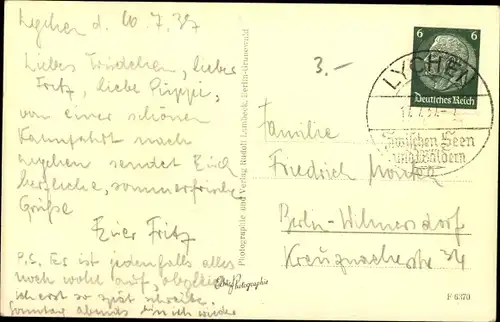 Lychen d. 10.7.37
Liebes Friedchen, lieber
Fritz, liebe Püppi,
von einer schönen
Kannfahrt nach
Lychen sendet Euch
herzliche, sommerfrische
Grüße
Euer Fritz
P.S. Es ist jedenfalls alles
noch wohl auf, obgleich
ich erst so spät schreibe.
Sonntag abends bin ich wieder
Photographie und Verlag Rudolf Lambeck, Berlin-Grunewald
Echte Photographie
3.-
6 6
Deutsches Reich
LYCHEN
Zwischen Seen
und Wäldern
Familie
Friedrich
Berlin-Wilmersdorf
Kreuznacherstr 34
F 6370